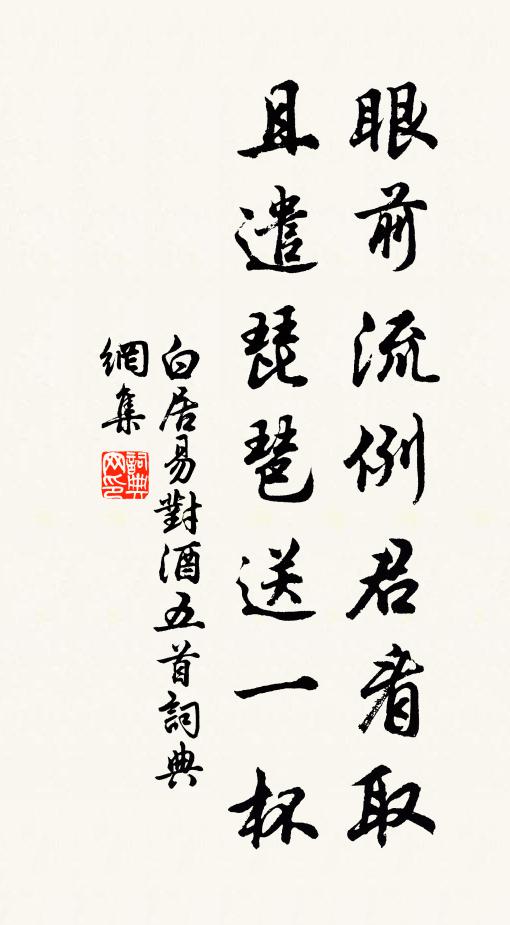 眼前流例君看取
且遣琵琶送一杯
白居易對酒五首詞典
網集
詞典
网印